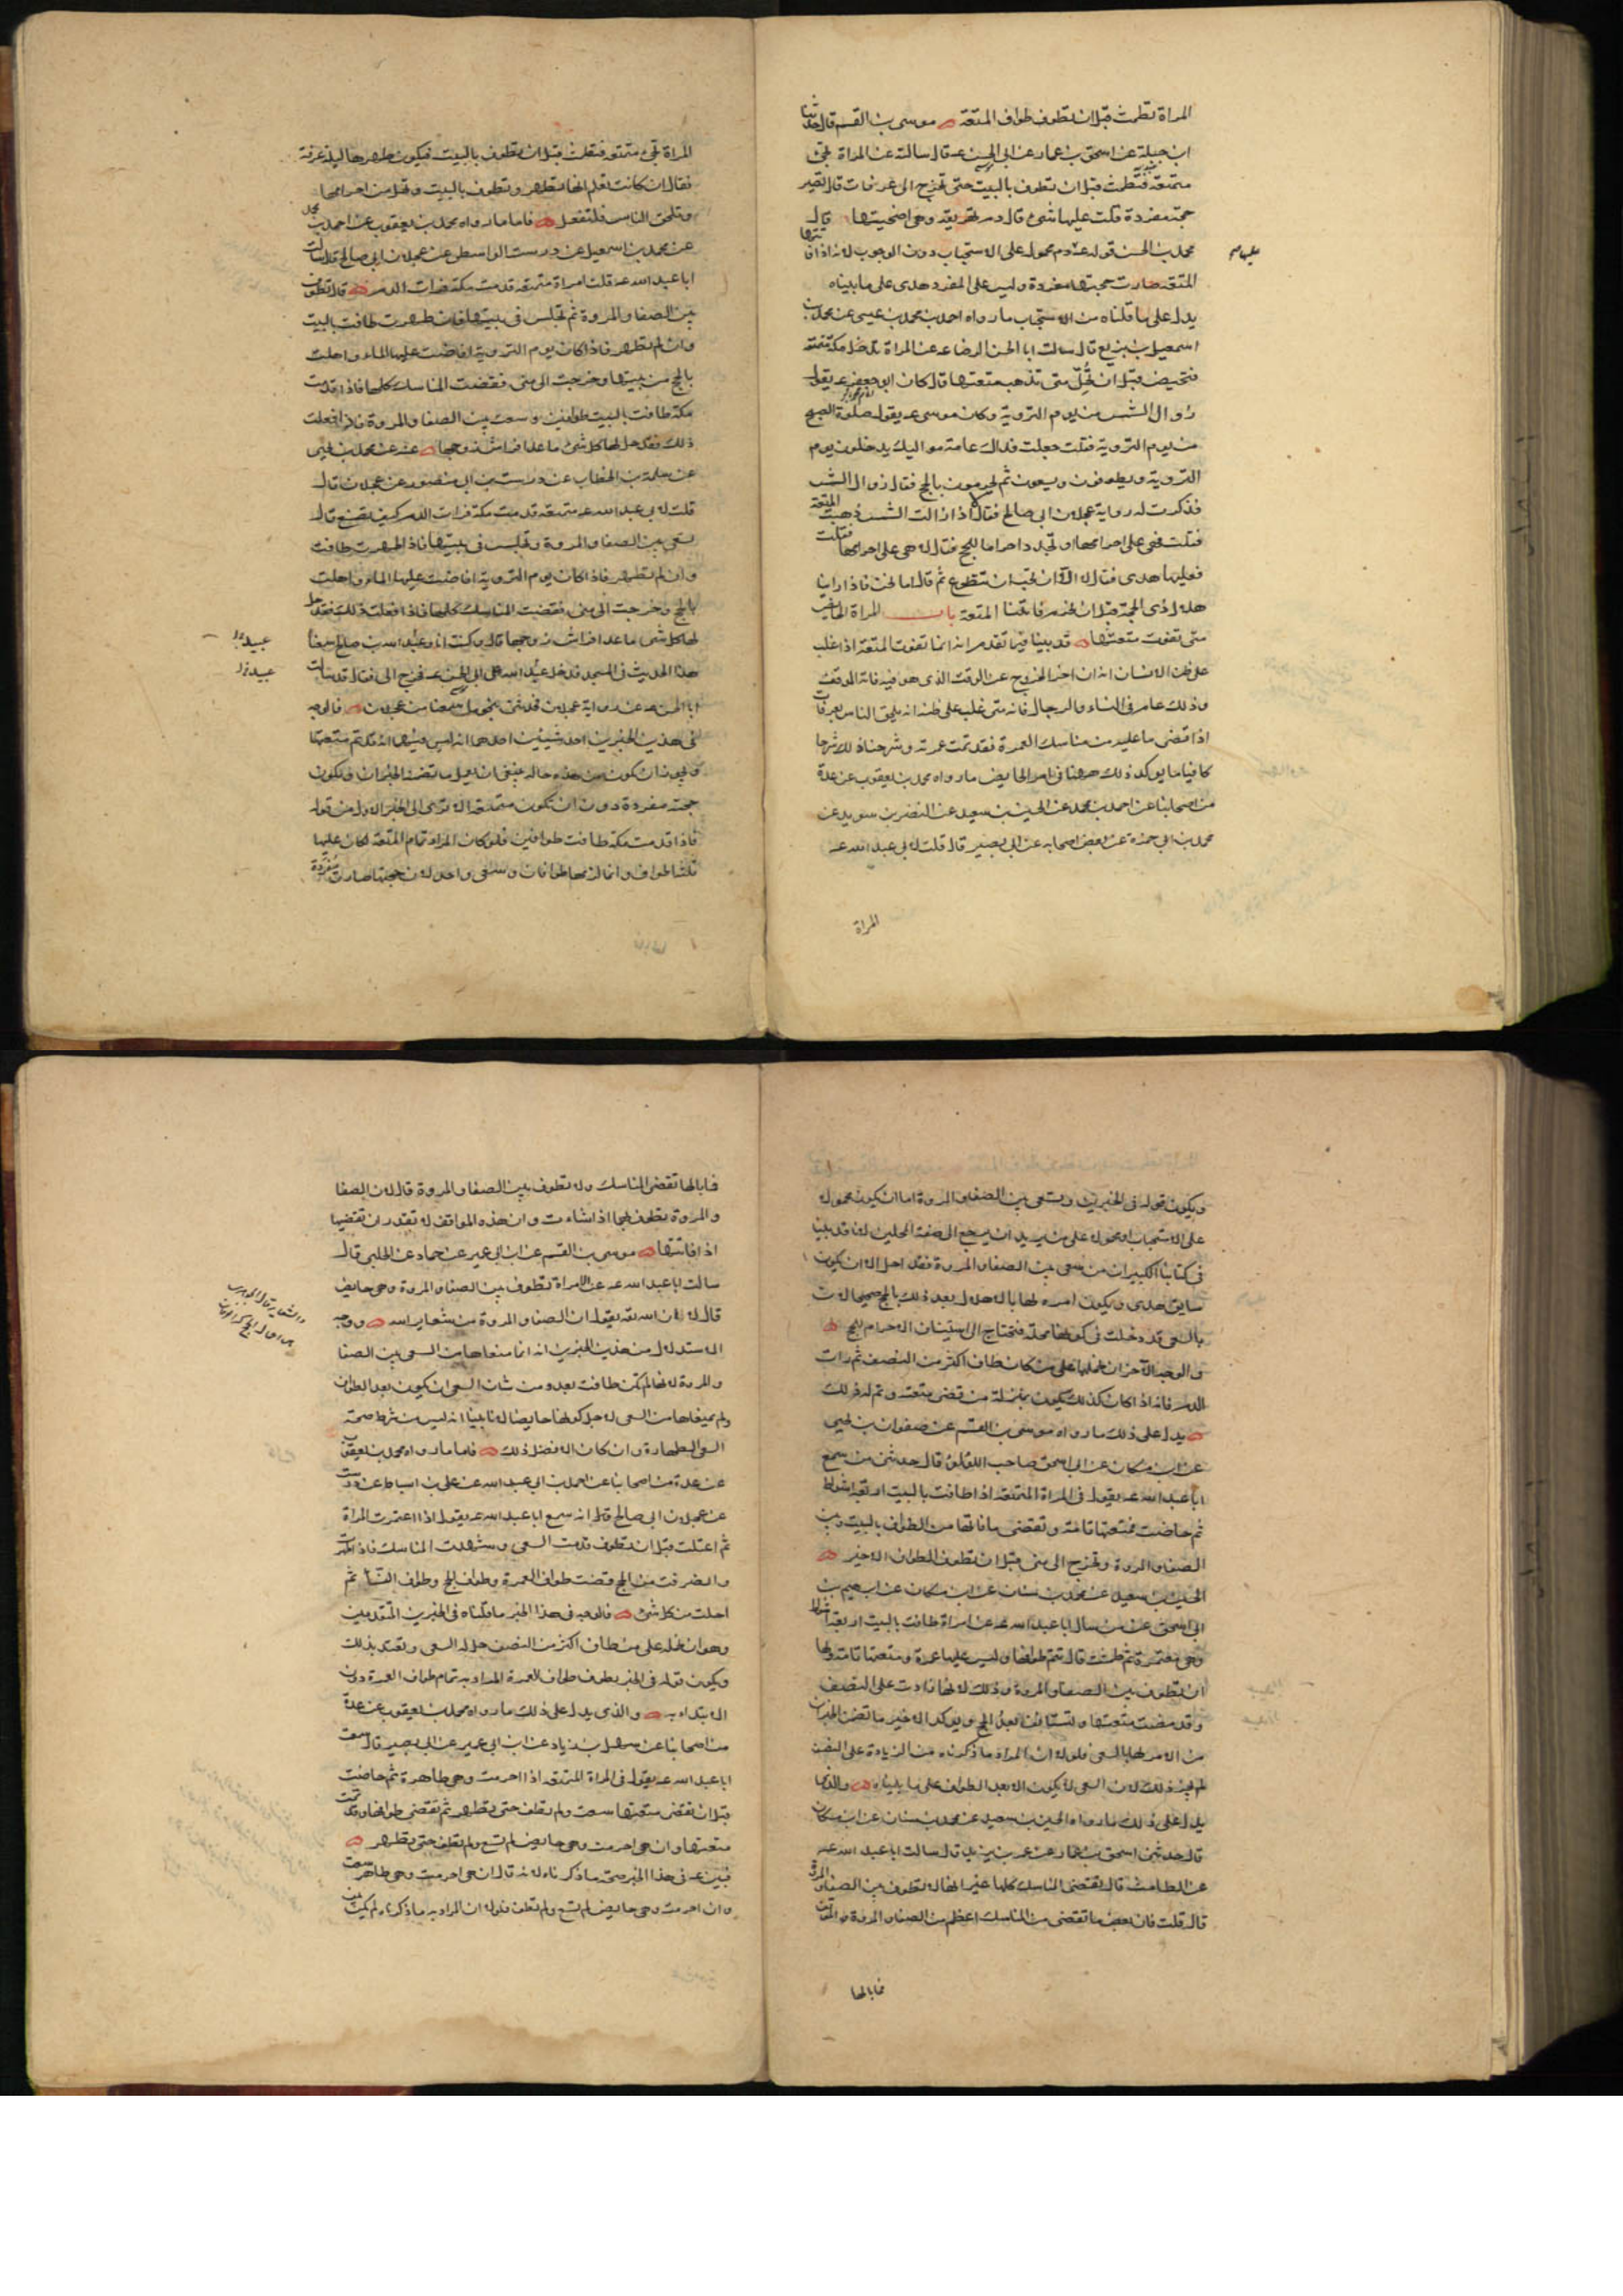 المراة تطمث قبل ان تطوف طواف المتعة موسى بن القسم قال حدثنا
ابن جبلة عن اسحق بن عمار عن ابى الحسن عه قال سالته عن المراة تجئ
متمتعة فتطمث قبل ان تطوف بالبيت حتى تخرج الى عرفات قال تصير
حجة مفردة قلت عليها شئ قال دم تهريقه وهى اضحيتها قال
محمد بن الحسن قوله عه دم محمول على الاستحباب دون الوجوب لانه اذا فاتتها
المتعة صارت حجتها مفردة وليس على المفرد هدى على ما بيناه
يدل على ما قلناه من الاستحباب ما رواه احمد بن محمد بن عيسى عن محمد بن
اسمعيل بن بزيع قال سالت ابا الحسن الرضا عه عن المراة تدخل مكة متمتعة
فتحيض قبل ان تحل متى تذهب متعتها قال كان ابو جعفر عه يقول
زوال الشمس من يوم التروية وكان موسى عه يقول صلوة الصبح
من يوم التروية فقلت جعلت فداك عامة مواليك يدخلون يوم
التروية ويطوفون ويسعون ثم يحرمون بالحج فقال زوال الشمس
فذكرت له رواية عجلان ابى صالح فقال لا اذا زالت الشمس ذهبت المتعة
فقلت فهى على احرامها او تجدد احراما للحج فقال لا هى على احرامها فقلت
فعليها هدى فقال لا الا ان تحب ان تتطوع ثم قال اما نحن فاذا راينا
هلال ذى الحجة قبل ان نحرم فاتتنا المتعة باب المراة الحايض
متى تفوت متعتها قد بينا فيما تقدم انه انما تفوت المتعة اذا غلب
على ظن الانسان انه ان اخر الخروج عن الوقت الذى هو فيه فاته الموقف
وذلك عام فى النساء والرجال فانه متى غلب على ظنه انه يلحق الناس بعرفات
اذا قضى ما عليه من مناسك العمرة فقد تمت عمرته وشرحنا ذلك شرحا
كافيا ما يوكد ذلك ههنا فى امر الحايض ما رواه محمد بن يعقوب عن عدة
من اصحابنا عن احمد بن محمد عن الحسين بن سعيد عن النضر بن سويد عن
محمد بن ابى حمزة عن بعض اصحابه عن ابى بصير قال قلت لابى عبد الله عه
المراة
المراة تجئ متمتعة فتطمث قبل ان تطوف بالبيت فيكون طهرها ليلة عرفة
فقال ان كانت تعلم انها تطهر وتطوف بالبيت وتحل من احرامها
وتلحق الناس فلتفعل فاما ما رواه محمد بن يعقوب عن احمد بن محمد
عن محمد بن اسمعيل عن درست الواسطى عن عجلان ابى صالح قال سالت
ابا عبد الله عه قلت امراة متمتعة قدمت مكة فرات الدم قال تطوف
بين الصفا والمروة ثم تجلس فى بيتها فان طهرت طافت بالبيت
وان لم تطهر فاذا كان يوم التروية افاضت عليها الماء واهلت
بالحج من بيتها وخرجت الى منى فقضت المناسك كلها فاذا قدمت
مكة طافت بالبيت طوافين وسعت بين الصفا والمروة فاذا فعلت
ذلك فقد حل لها كل شئ ما عدا فراش زوجها عنه عن محمد بن يحيى
عن سلمة بن الخطاب عن درست بن ابى منصور عن عجلان قال
قلت لابى عبد الله عه متمتعة قدمت مكة فرات الدم كيف تصنع قال
تسعى بين الصفا والمروة وتجلس فى بيتها فاذا طهرت طافت
وان لم تطهر فاذا كان يوم التروية افاضت عليها الماء واهلت
بالحج وخرجت الى منى فقضت المناسك كلها فاذا فعلت ذلك فقد حل
لها كل شئ ما عدا فراش زوجها قال وكنت انا وعبد الله بن صالح سمعنا
هذا الحديث فى المسجد فدخل عبد الله على ابى الحسن عه فخرج الى فقال قد سالت
ابا الحسن عه عن رواية عجلان فحدثنى بنحو ما سمعنا من عجلان فالوجه
فى هذين الخبرين احد شيئين احدهما انه ليس فيهما انه قد تم متعتها
ويجوز ان يكون من هذه حاله ينبغى ان يعمل ما تضمنه الخبران ويكون
حجته مفردة دون ان تكون متمتعة الا ترى الى الخبر الاول من قوله
فاذا قدمت مكة طافت طوافين فلو كان المراد تمام المتعة لكان عليها
ثلثة اطواف وانما لزمها طوافان وسعى واحد لان حجتها صارت مفردة
ويكون قوله فى الخبرين وتسعى بين الصفا والمروة اما ان يكون محمولا
على الاستحباب او محمولا على من يريد ان يرجع الى صفة المحلين لانا قد بينا
فى كتابنا الكبير ان من سعى بين الصفا والمروة فقد احل الا ان يكون
سايق هدى ويكون امره لها بالاهلال بعد ذلك بالحج صحيحا لان
بالسعى قد دخلت فى كونها محلة فتحتاج الى استيناف الاحرام للحج
والوجه الآخر ان نحملها على من كان طاف اكثر من النصف ثم رات
الدم فانه اذا كان كذلك يكون بمنزلة من قضى متعته وتم له ذلك
يدل على ذلك ما رواه موسى بن القسم عن صفوان بن يحيى
عن ابن مسكان عن ابى اسحق صاحب اللؤلؤ قال حدثنى من سمع
ابا عبد الله عه يقول فى المراة المتمتعة اذا طافت بالبيت اربعة اشواط
ثم حاضت فمتعتها تامة وتقضى ما فاتها من الطواف بالبيت وبين
الصفا والمروة وتخرج الى منى قبل ان تطوف الطواف الاخير
الحسين بن سعيد عن محمد بن سنان عن ابن مسكان عن ابرهيم بن
ابى اسحق عن من سال ابا عبد الله عه عن امراة طافت بالبيت اربعة اشواط
وهى معتمرة ثم طمثت قال تتم طوافها وليس عليها عمرة ومتعتها تامة ولها
ان تطوف بين الصفا والمروة وذلك لانها زادت على النصف
وقد مضت متعتها ولتستانف بعد الحج ويوكد الاخير ما تضمن الخبران
من الامر لها بالسعى فلولا ان المراد ما ذكرناه من الزيادة على النصف
لم يجز ذلك لان السعى لا يكون الا بعد الطواف على ما بيناه والذى
يدل على ذلك ما رواه الحسين بن سعيد عن محمد بن سنان عن ابن مسكان
قال حدثنى اسحق بن عمار عن عمر بن يزيد قال سالت ابا عبد الله عه
عن الطامث قال تقضى المناسك كلها غير انها لا تطوف بين الصفا والمروة
قال قلت فان بعض ما تقضى من المناسك اعظم من الصفا والمروة والموقف
فما بالها
فما بالها تقضى المناسك ولا تطوف بين الصفا والمروة قال لان الصفا
والمروة تطوف بهما اذا شاءت وان هذه المواقف لا تقدر ان تقضيها
اذا فاتتها موسى بن القسم عن ابن ابى عمير عن حماد عن الحلبى قال
سالت ابا عبد الله عه عن الامراة تطوف بين الصفا والمروة وهى حايض
قال لا ان الله تعه يقول ان الصفا والمروة من شعاير الله ووجه
الاستدلال من هذين الخبرين انه انما منعاها من السعى بين الصفا
والمروة لانها لم تكن طافت بعد ومن شان السعى ان يكون بعد الطواف
ولم يمنعاها من السعى لاجل كونها حايضا لانا بينا انه ليس من شرط صحة
السعى الطهارة وان كان الافضل ذلك فاما ما رواه محمد بن يعقوب
عن عدة من اصحابنا عن احمد بن ابى عبد الله عن على بن اسباط عن درست
عن عجلان ابى صالح قال انه سمع ابا عبد الله عه يقول اذا اعتمرت المراة
ثم اعتلت قبل ان تطوف قدمت السعى وشهدت المناسك فاذا طهرت
وانصرفت من الحج قضت طواف العمرة وطواف الحج وطواف النساء ثم
احلت من كل شئ فالوجه فى هذا الخبر ما قلناه فى الخبرين المتقدمين
وهو ان نحمله على من طاف اكثر من النصف حل له السعى وتعتد بذلك
ويكون قوله فى الخبر يطوف طواف العمرة المراد به تمام طواف العمرة دون
الابتداء به والذى يدل على ذلك ما رواه محمد بن يعقوب عن عدة
من اصحابنا عن سهل بن زياد عن ابن ابى عمير عن ابى بصير قال سمعت
ابا عبد الله عه يقول فى المراة المتمتعة اذا احرمت وهى طاهرة ثم حاضت
قبل ان تقضى متعتها سعت ولم تطف حتى تطهر ثم تقضى طوافها وقد تمت
متعتها وان هى احرمت وهى حايض لم تسع ولم تطف حتى تطهر
فبين عه فى هذا الخبر صحة ما ذكرناه لانه قال ان هى احرمت وهى طاهر سعت
وان احرمت وهى حايض لم تسع ولم تطف فلولا ان المراد به ما ذكرناه لم يكن